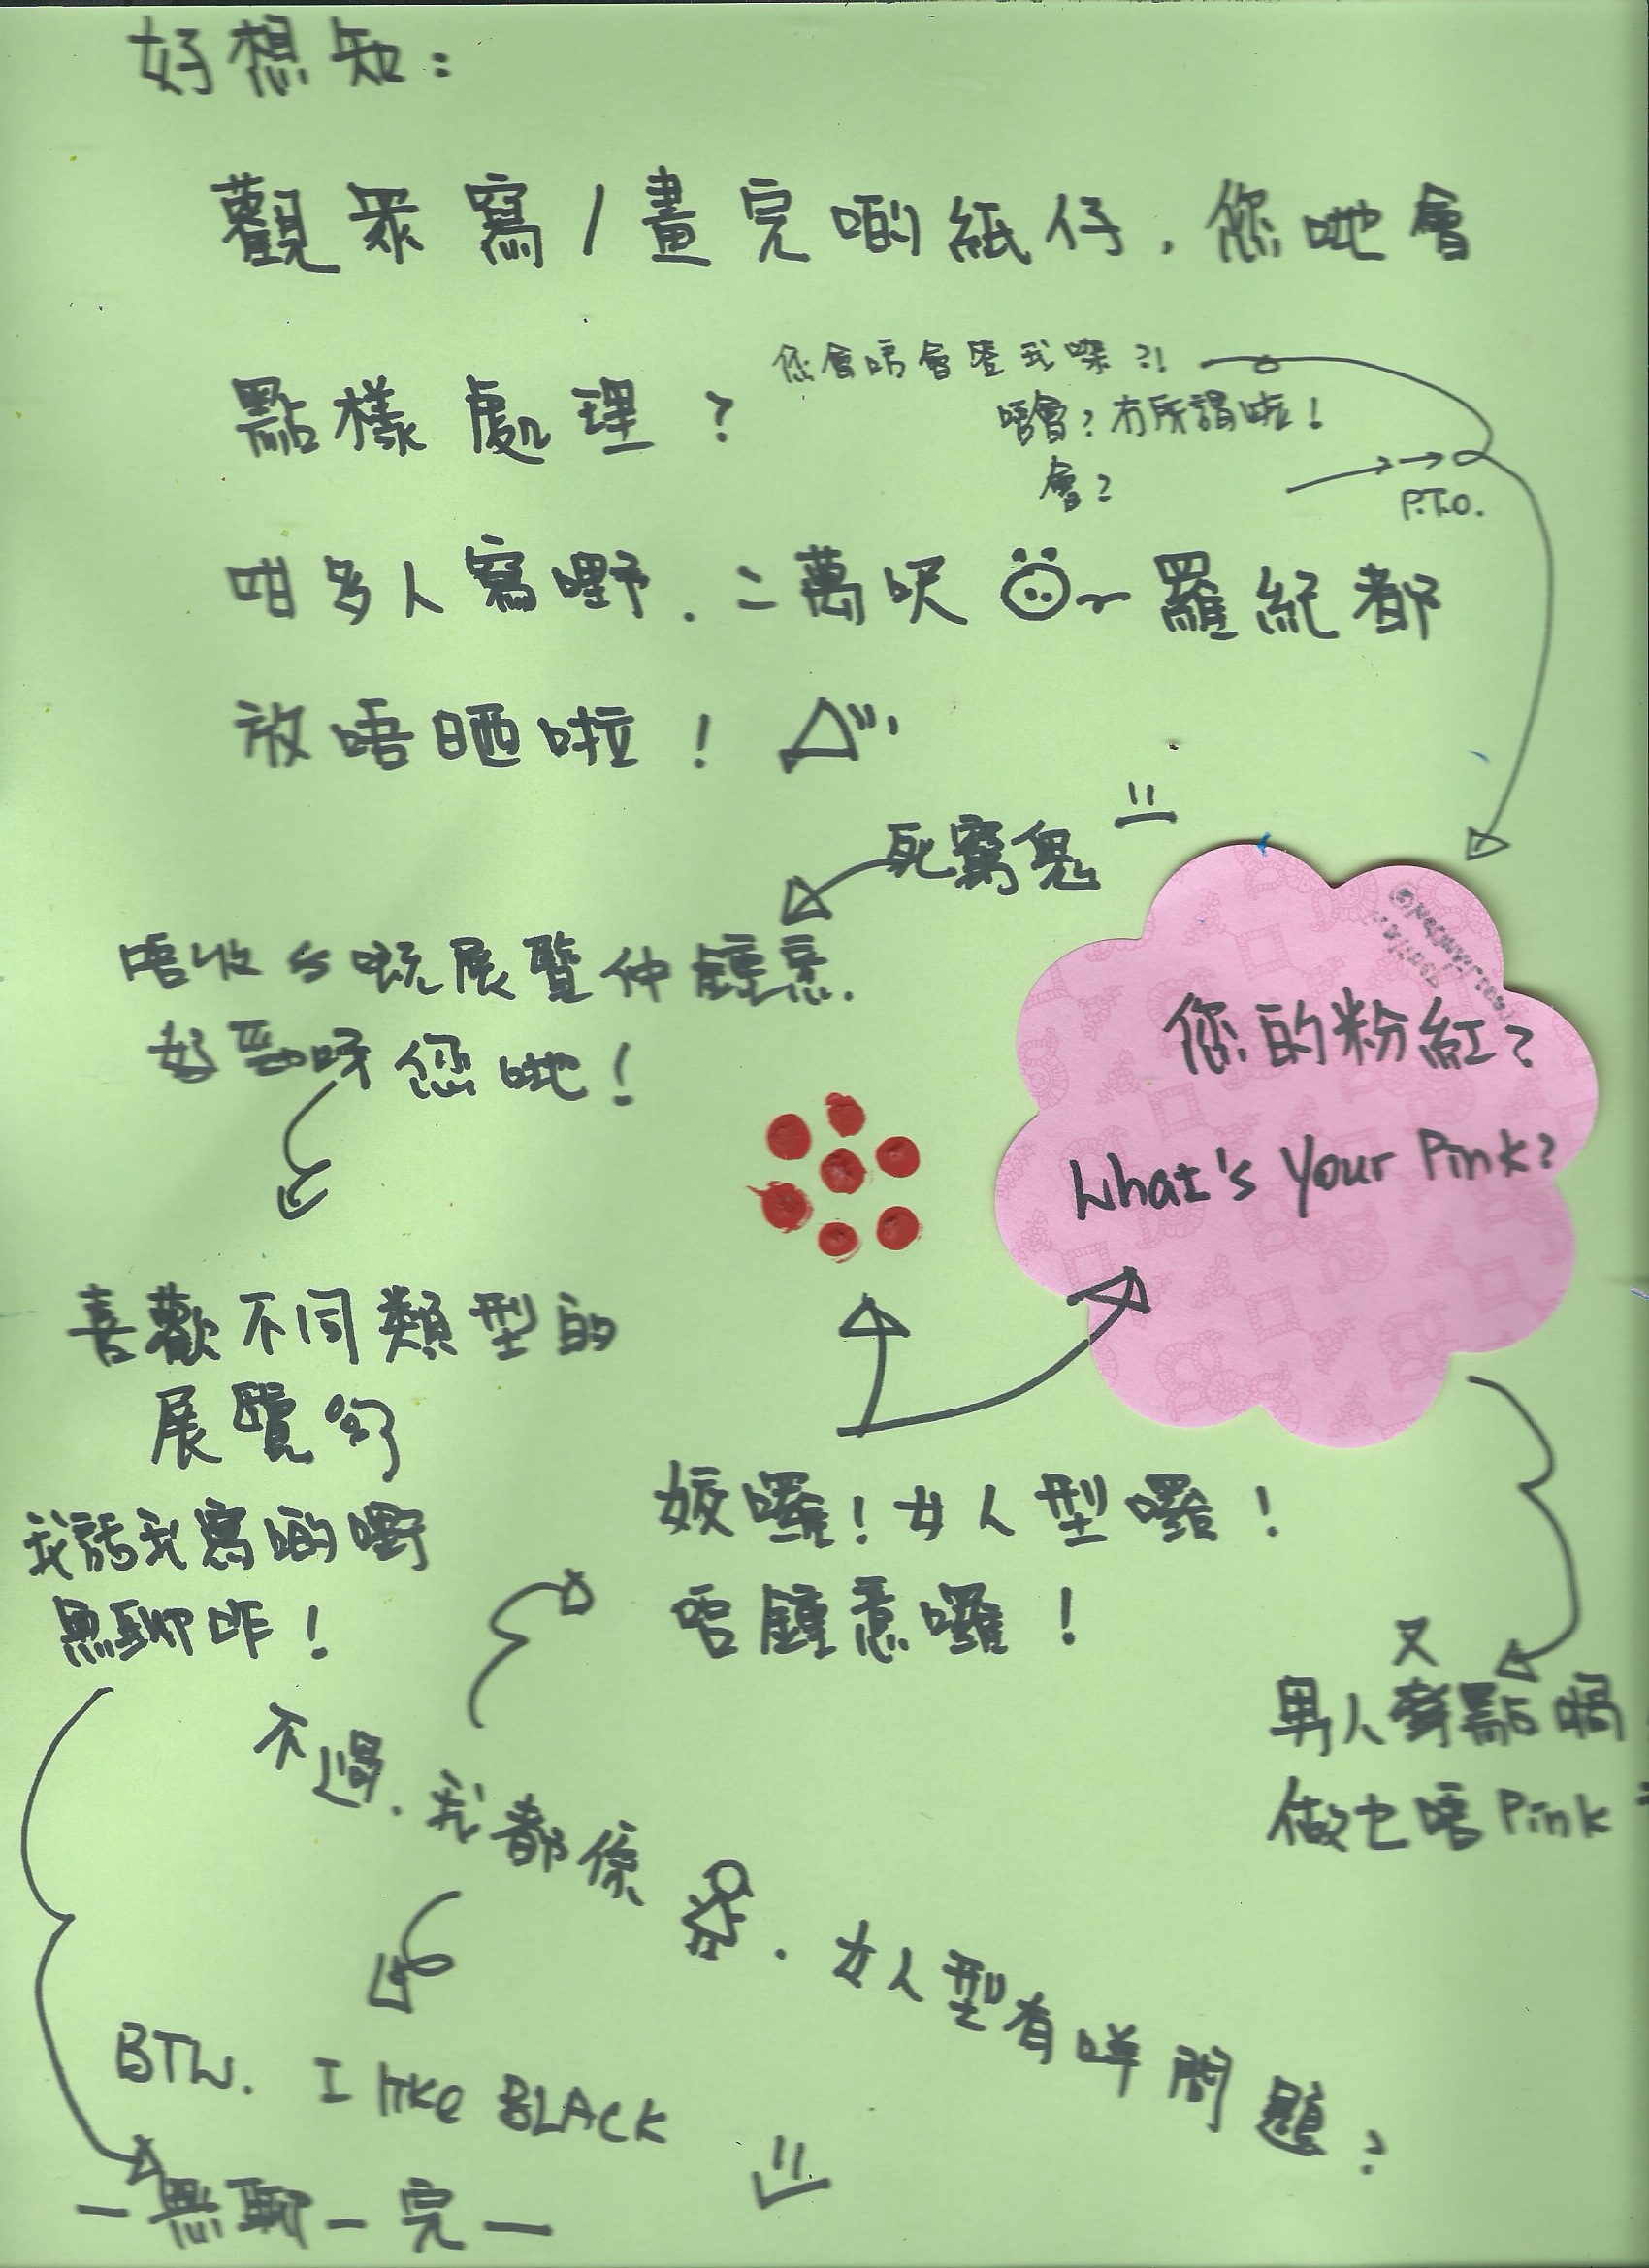 好想知：
觀眾寫/畫完啲紙仔，您哋會
點樣處理？
您會唔會答我㗎？！
唔會？冇所謂啦！
會？
P.T.O.
咁多人寫嘢．二萬呎
羅紀都
放唔晒啦！
死窮鬼
唔收$嘅展覽仲鍾意．
好勁呀您哋！
您的粉紅？
What's Your Pink?
喜歡不同類型的
展覽
我話我寫啲嘢
無聊咋！
姣囉！女人型囉！
唔鍾意囉！
又
男人
做乜唔Pink
不過．我都係
．女人型有咩問題？
BTW. I like BLACK
－無聊－完－